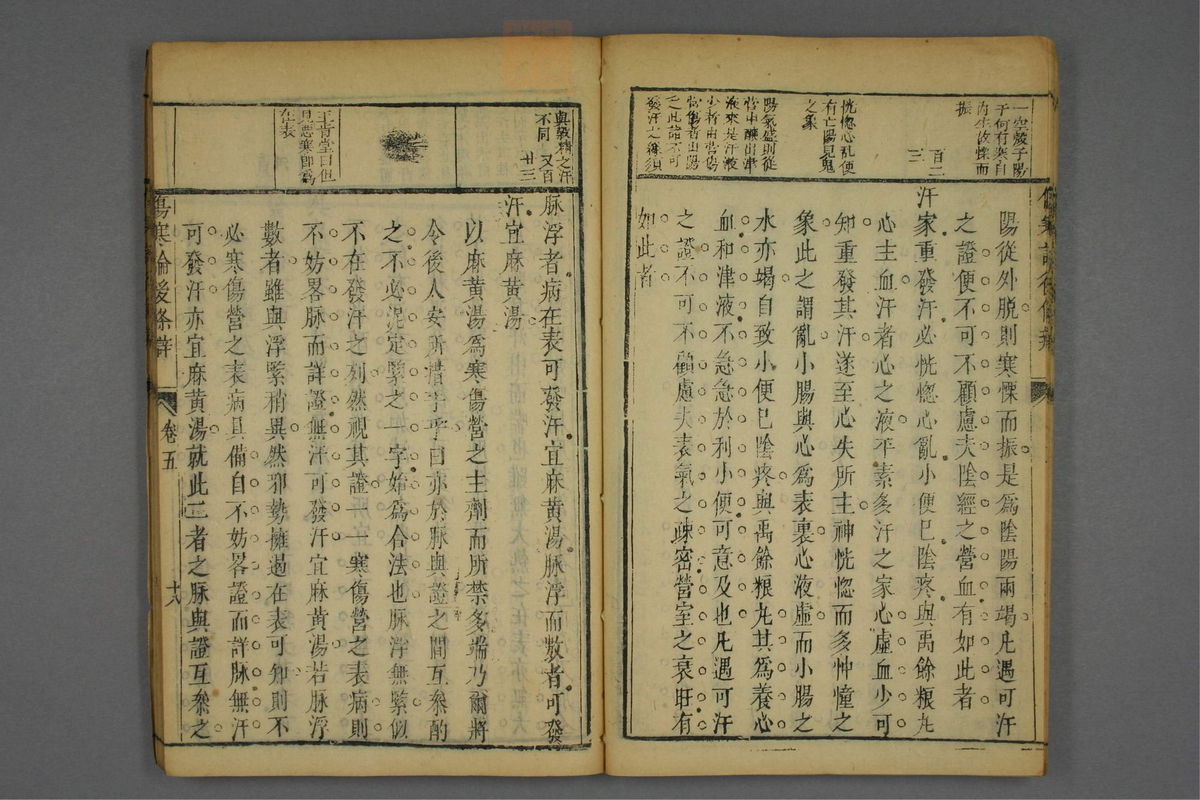 一空發予陽
于何有寒自
内生故慄而
振
恍惚心乱便
有亡陽見鬼
之象
百二
三
陽氣盛則從
營中釀出津
液來是汗液
之此諸不可
陽從外脫則寒慄而振是爲陰陽兩竭凡遇可汗
之證便不可不顧慮夫陰經之營血有如此者
汗家重發汗必恍惚心亂小便已陰疼與禹餘粮丸
心主血汗者心之液平素多汗之家心虛血少可
知重發其汗遂至心失所主神恍惚而多忡憧之
象此之謂亂小腸與心爲表裏心液虛而小腸之
水亦竭自致小便已陰疼與禹餘粮丸其爲養心
血和津液不急急於利小便可意及也凡遇可汗
之證不可不顧慮夫表氣之疎密營室之衰旺有
如此者
與敦精之汗
不同
又百
廿三
王肯堂曰但
見惡寒即爲
在表
脉浮者病在表可發汗宜麻黄湯脉浮而數者可發
汗宜麻黄湯
以麻黄湯爲寒傷營之主劑而所禁多端乃爾將
令後人安所措手乎曰亦於脉與證之間互叅酌
之不必泥定緊之一字始爲合法也脉浮無緊似
不在發汗之列然視其證一一寒傷營之表病則
不妨畧脉而詳證無汗可發汗宜麻黄湯若脉浮
數者雖與浮緊稍異然邪勢擁遏在表可知則不
必寒傷營之表病具備自不妨畧證而詳脉無汗
可發汗亦宜麻黄湯就此二者之脉與證互叅之
傷寒論後條辨
卷五
十六